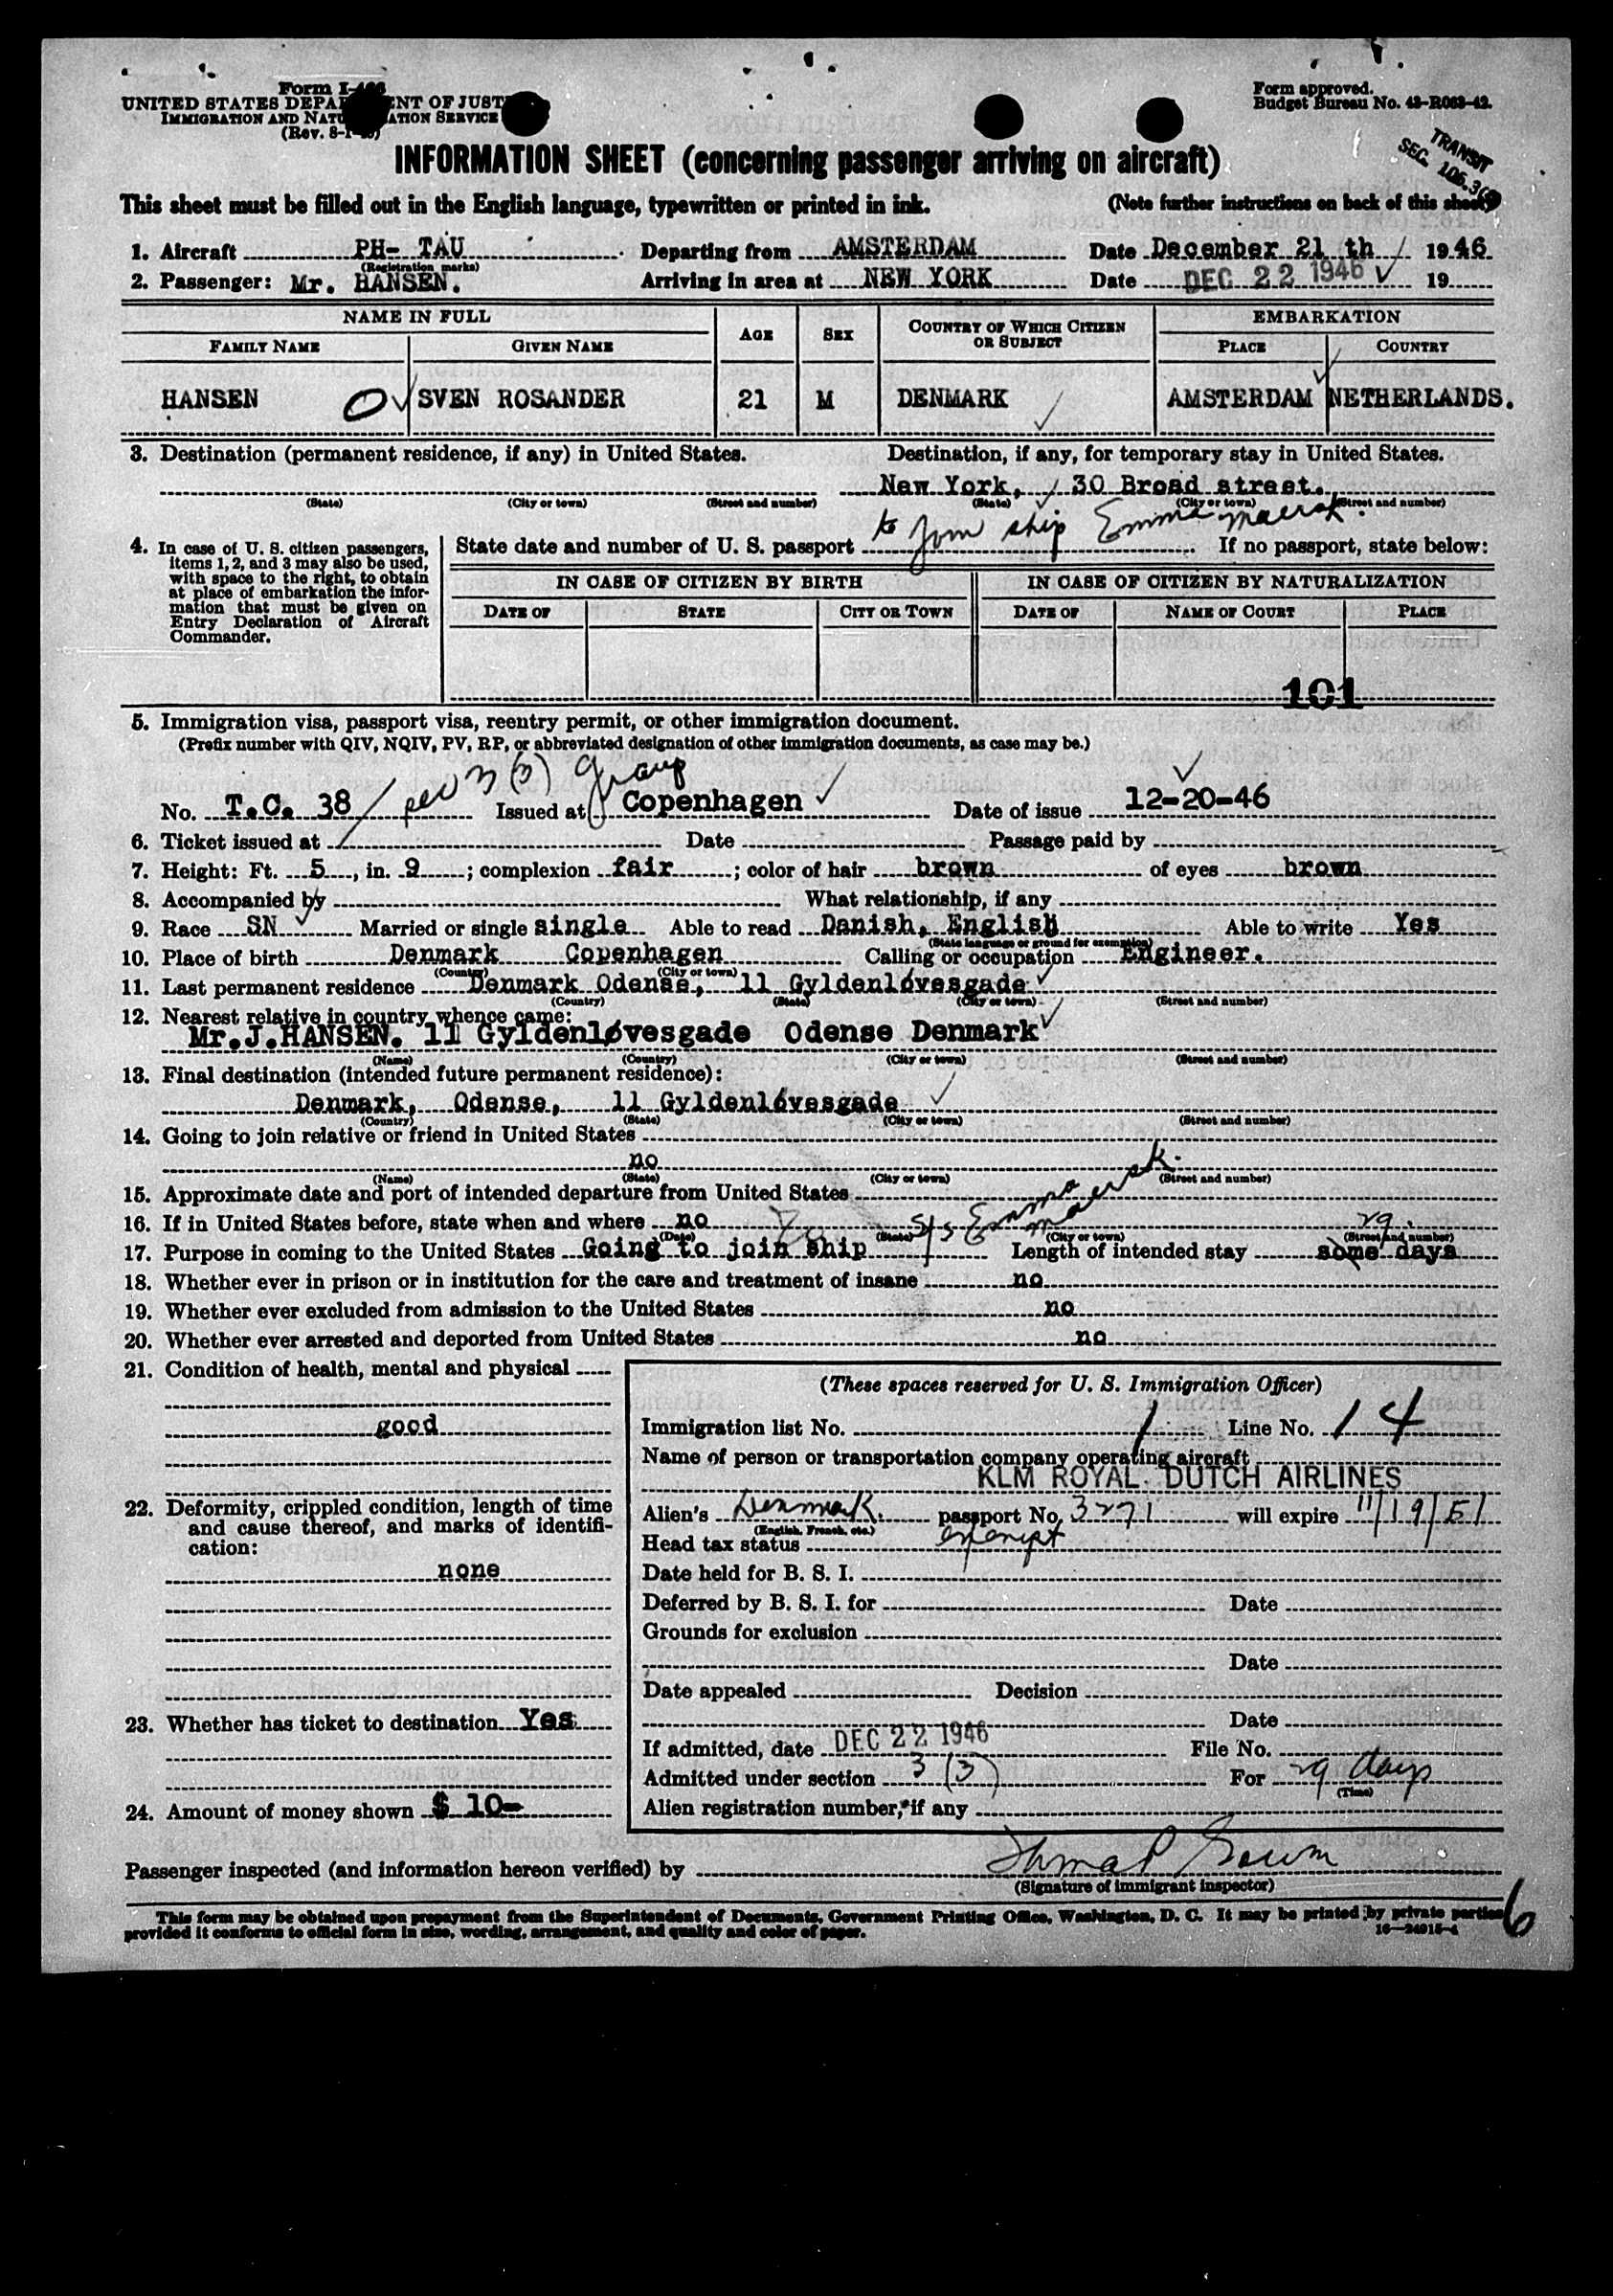 Form I-466
UNITED STATES DEPARTMENT OF JUSTICE
IMMIGRATION AND NATURALIZATION SERVICE
(Rev. 8-1-
Form approved.
Budget Bureau No. 43-R063-42.
TRANSIT
SEC. 106.3
INFORMATION SHEET (concerning passenger arriving on aircraft)
This sheet must be filled out in the English language, typewritten or printed in ink. (Note further instructions on back of this sheet)
1. Aircraft PH- TAU Departing from AMSTERDAM Date December 21 th 1946
(Registration marks)
2. Passenger: Mr. HANSEN. Arriving in area at NEW YORK Date DEC 22 1946 19
NAME IN FULL AGE SEX COUNTRY OF WHICH CITIZEN OR SUBJECT EMBARKATION
FAMILY NAME GIVEN NAME PLACE COUNTRY
HANSEN SVEN ROSANDER 21 M DENMARK AMSTERDAM NETHERLANDS.
3. Destination (permanent residence, if any) in United States. Destination, if any, for temporary stay in United States.
New York, 30 Broad street.
(State) (City or town) (Street and number) (State) (City or town) (Street and number)
to Join ship Emma Maersk.
4. In case of U. S. citizen passengers, items 1, 2, and 3 may also be used, with space to the right, to obtain at place of embarkation the information that must be given on Entry Declaration of Aircraft Commander.
State date and number of U. S. passport If no passport, state below:
IN CASE OF CITIZEN BY BIRTH IN CASE OF CITIZEN BY NATURALIZATION
DATE OF STATE CITY OR TOWN DATE OF NAME OF COURT PLACE
101
5. Immigration visa, passport visa, reentry permit, or other immigration document.
(Prefix number with QIV, NQIV, PV, RP, or abbreviated designation of other immigration documents, as case may be.)
No. T.C. 38 sec 3 (3) group Issued at Copenhagen Date of issue 12-20-46
6. Ticket issued at Date Passage paid by
7. Height: Ft. 5, in. 9; complexion fair; color of hair brown of eyes brown
8. Accompanied by What relationship, if any
9. Race SN Married or single single Able to read Danish, English Able to write Yes
(State language or ground for exemption)
10. Place of birth Denmark Copenhagen Calling or occupation Engineer.
(Country) (City or town)
11. Last permanent residence Denmark Odense, 11 Gyldenløvesgade
(Country) (State) (City or town) (Street and number)
12. Nearest relative in country whence came:
Mr.J.HANSEN. 11 Gyldenløvesgade Odense Denmark
(Name) (Country) (City or town) (Street and number)
13. Final destination (intended future permanent residence):
Denmark, Odense, 11 Gyldenløvesgade
(Country) (State) (City or town) (Street and number)
14. Going to join relative or friend in United States
no
(Name) (State) (City or town) (Street and number)
15. Approximate date and port of intended departure from United States
16. If in United States before, state when and where no S/S Emma Maersk.
(Date) (State) (City or town) (Street and number)
17. Purpose in coming to the United States Going to join ship Length of intended stay 29. some days
18. Whether ever in prison or in institution for the care and treatment of insane no
19. Whether ever excluded from admission to the United States no
20. Whether ever arrested and deported from United States no
21. Condition of health, mental and physical
good
22. Deformity, crippled condition, length of time and cause thereof, and marks of identification:
none
23. Whether has ticket to destination Yes
24. Amount of money shown $ 10-
(These spaces reserved for U. S. Immigration Officer)
Immigration list No. 1 Line No. 14
Name of person or transportation company operating aircraft
KLM ROYAL DUTCH AIRLINES
Alien's Denmark. passport No. 3271 will expire 11/19/51
(English, French, etc.)
Head tax status exempt
Date held for B. S. I.
Deferred by B. S. I. for Date
Grounds for exclusion
Date
Date appealed Decision
Date
If admitted, date DEC 22 1946 File No.
Admitted under section 3 (3) For 29 days
(Time)
Alien registration number, if any
Passenger inspected (and information hereon verified) by
(Signature of immigrant inspector)
6
This form may be obtained upon prepayment from the Superintendent of Documents, Government Printing Office, Washington, D. C. It may be printed by private parties
provided it conforms to official form in size, wording, arrangement, and quality and color of paper. 16—24915-4